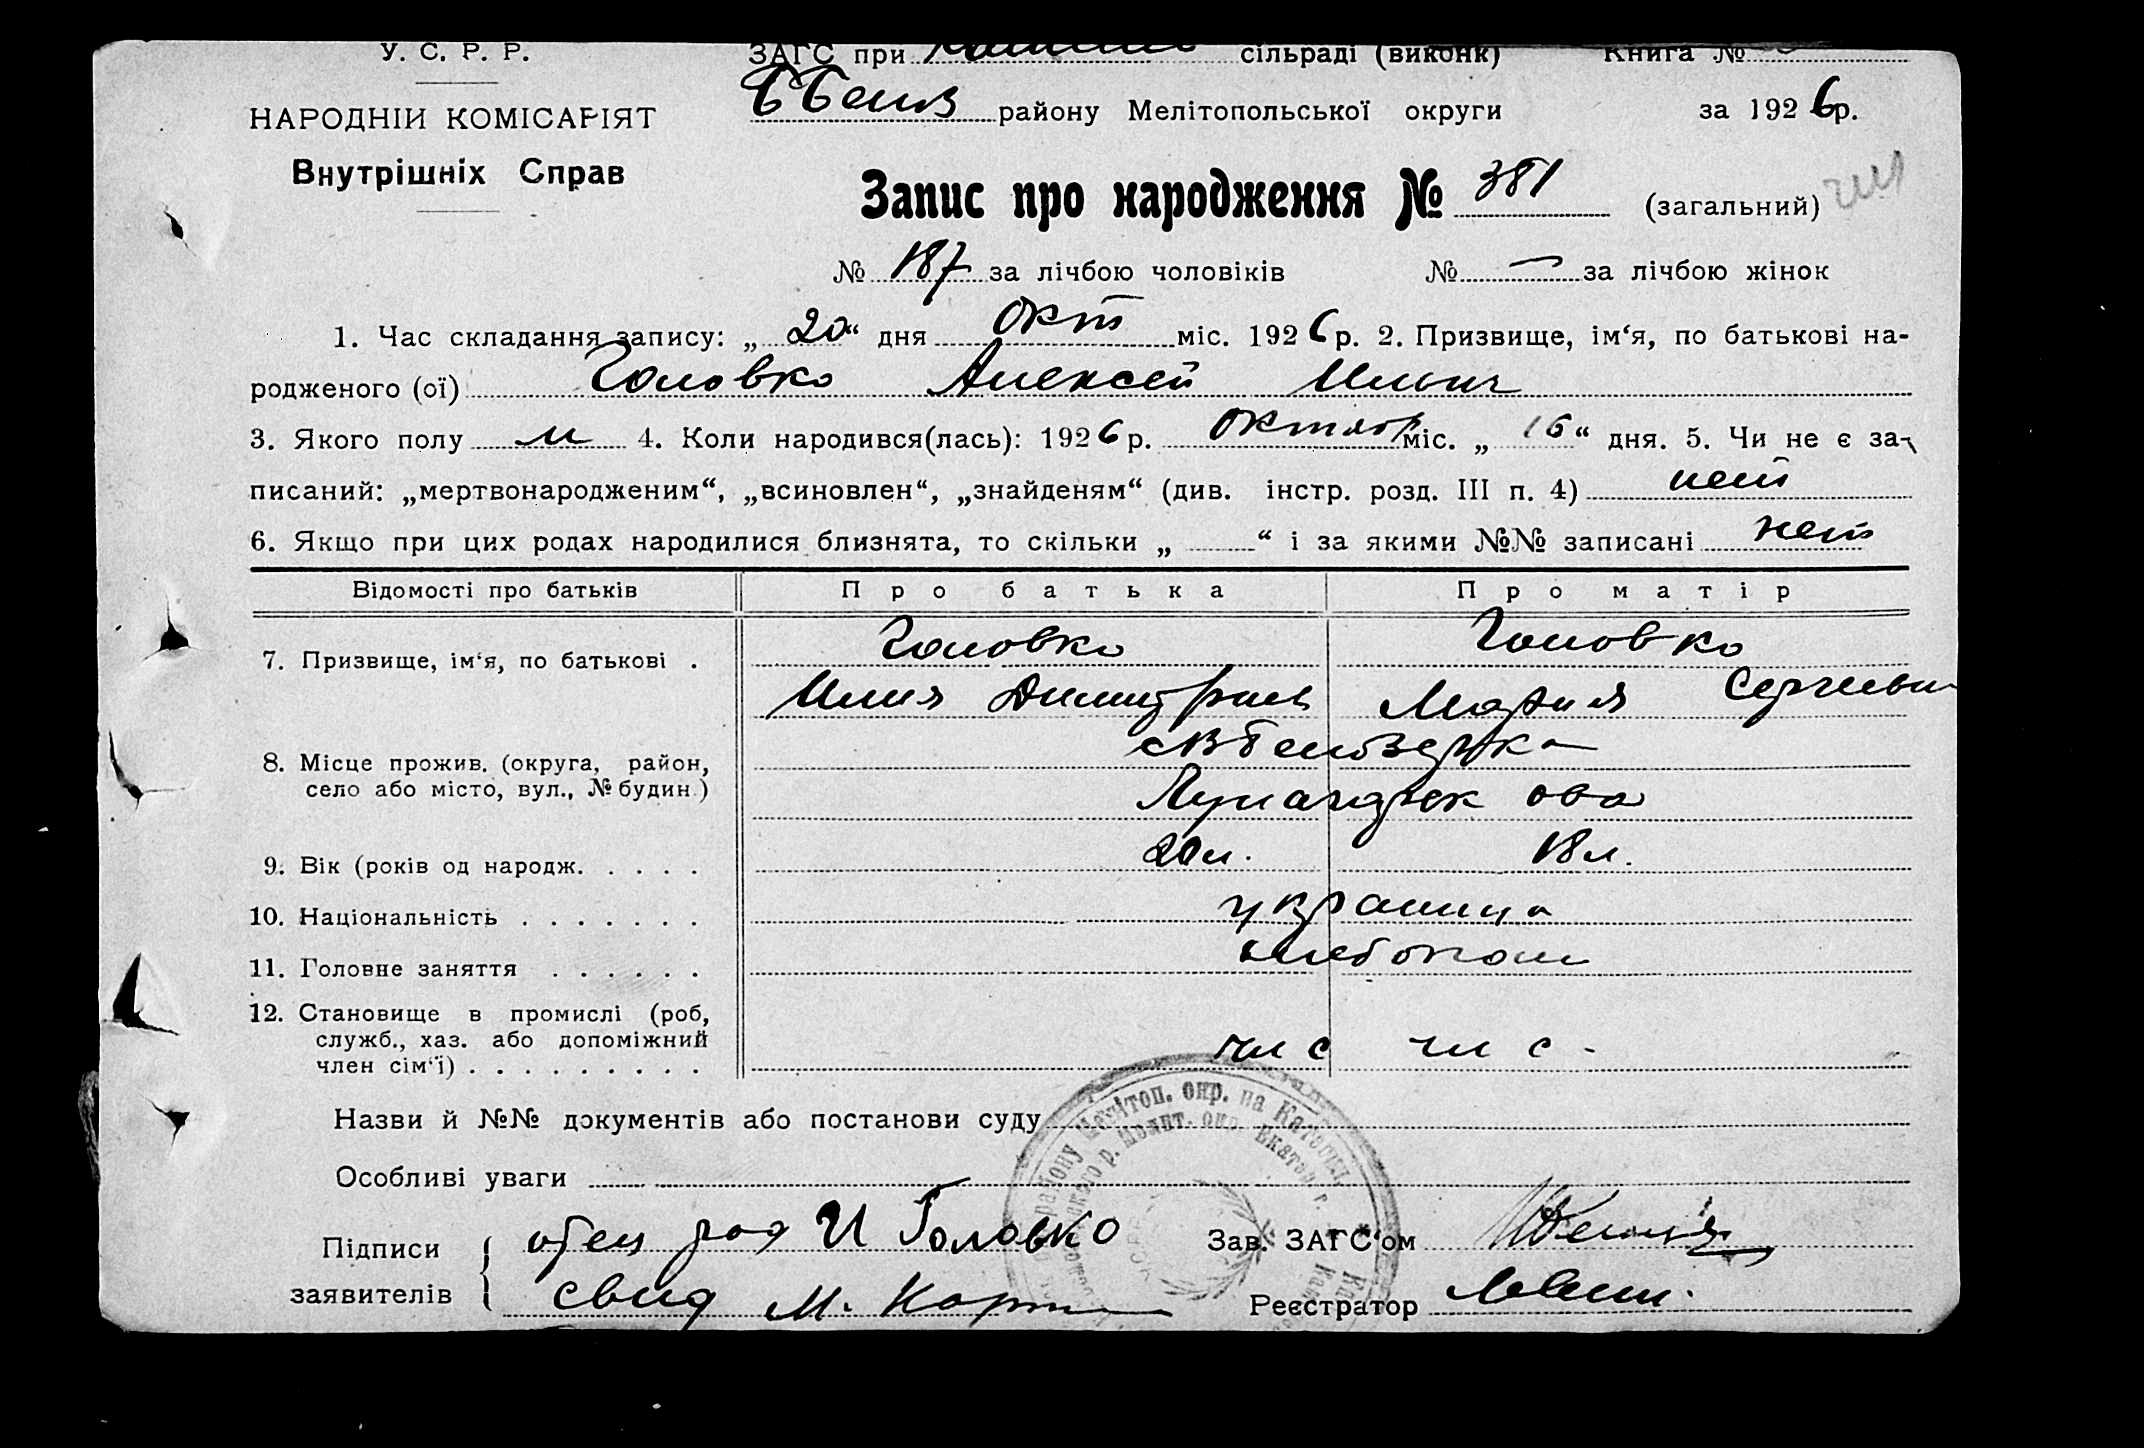 У. С. Р. Р. ЗАГС при сільраді (виконк) Книга №
НАРОДНІЙ КОМІСАРІЯТ
Внутрішніх Справ
району Мелітопольської округи за 1926р.
Запис про народження № 381 (загальний)
№ 187 за лічбою чоловіків № — за лічбою жінок
1. Час складання запису: „20“ дня окт міс. 1926р. 2. Призвище, ім‘я, по батькові на-
родженого (ої) Головко Алексей Ильич
3. Якого полу м 4. Коли народився(лась): 1926р. октяб міс. „16“ дня. 5. Чи не є за-
писаний: „мертвонародженим“, „всиновлен“, „знайденям“ (див. інстр. розд. III п. 4) нет
6. Якщо при цих родах народилися близнята, то скільки „ “ і за якими №№ записані нет
Відомості про батьків Про батька Про матір
7. Призвище, ім‘я, по батькові . Головко Головко
Илия Димитриев Мария Сергеевн
8. Місце прожив. (округа, район,
село або місто, вул., № будин.)
9. Вік (років од народж. . . . . 20 л. 18 л.
10. Національність . . . . . . .
11. Головне заняття . . . . . . хлебопаш
12. Становище в промислі (роб,
служб., хаз. або допоміжний
член сім‘ї) . . . . . . . . . чл с чл с -
Назви й №№ документів або постанови суду
Особливі уваги
Підписи отец И Головко Зав. ЗАГС‘ом
заявителів свид М. Реєстратор